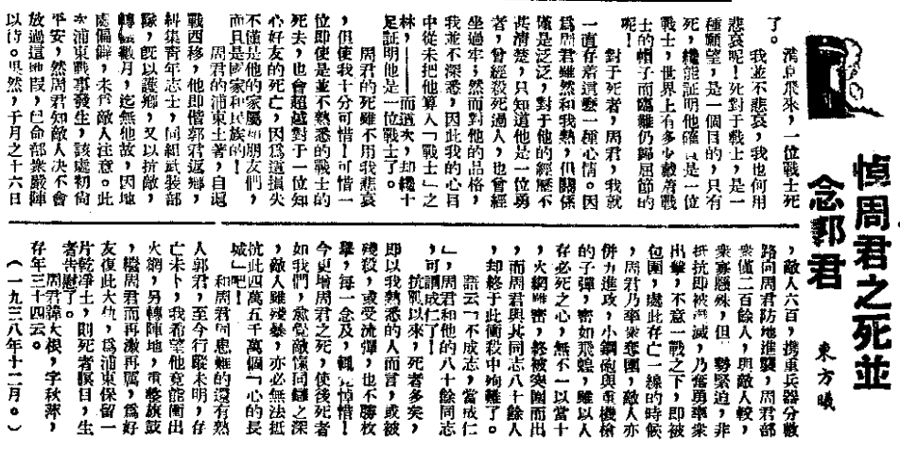 悼周君之死並
念郭君
東方曦
消息飛來，一位戰士死
了。
我並不悲哀，我也何用
悲哀呢！死對于戰士，是一
種願望，是一個目的，只有
死，纔能証明他確實是一位
戰士，世界上有多少戴着戰
士的帽子而臨難仍歸屈節的
呢！
對于死者，周君，我就
一直存着這麽一種心情。因
爲周君雖然和我熟，但關係
僅是泛泛，對于他的經歷不
甚清楚，只知道他是一位勇
者，曾經殺死過人，也曾經
坐過牢；然而對他的品格，
我並不深悉，因此我的心目
中從未把他算入「戰士」之
林，——而這次，却纔十
足証明他是一位戰士了。
周君的死雖不用我悲哀
，但使我十分可惜！可惜一
位即使是並不熟悉的戰士的
死去，也會超越對于一位知
心好友的死亡，因爲這損失
不僅是他的家屬和朋友們，
而且是國家和民族的！
周君的浦東土著，自滬
戰西移，他即偕郭君返鄉，
糾集靑年志士，同組武裝部
隊，旣以護鄉，又以抗敵，
轉輾數月，迄無他故，因地
處偏僻，未爲敵人注意。此
次浦東戰事發生，該處初尙
平安，然周君知敵人决不會
放過這地段，已命部衆嚴陣
以待。果然，于月之十六日
，敵人六百，携重兵器分數
路向周君防地進襲，周君部
衆僅二百餘人，與敵人較，
衆寡懸殊，但勢緊迫，非
抵抗即被殲滅，乃奮勇率衆
出擊，不意一戰之下，即被
包圍，處此存亡一線的時候
，周君乃率衆奪圍，敵人亦
併力進攻，小鋼砲與重機槍
的子彈，密如飛蝗，雖以人
存必死之心，無不一以當十
，火網雖密，終被突圍而出
，而周君與其同志八十餘人
，却終于此衝殺中殉難了。
語云「不成志，當成仁
」，周君和他的八十餘同志
，可謂成仁了！
抗戰以來，死者多矣，
即以我熟悉的人而言，或被
殘殺，或受流彈，也不勝枚
舉，每一念及，輒覺悼惜！
今更增周君之死，使後死者
如我們，愈覺敵愾同讎之深
，敵人雖殘暴，亦必無法抵
抗此四萬五千萬個「心的長
城」吧！
和周君同患難的還有熟
人郭君，至今行蹤未明，存
亡未卜，我希望他竟能衝出
火網，另轉陣地，重整旗鼓
，繼周君而再激再厲，爲好
友復此大仇，爲浦東保留一
片乾净土，則死者瞑目，生
者告慰了。
周君諱大根，字秋萍，
存年三十四云。
（一九三八年十二月。）